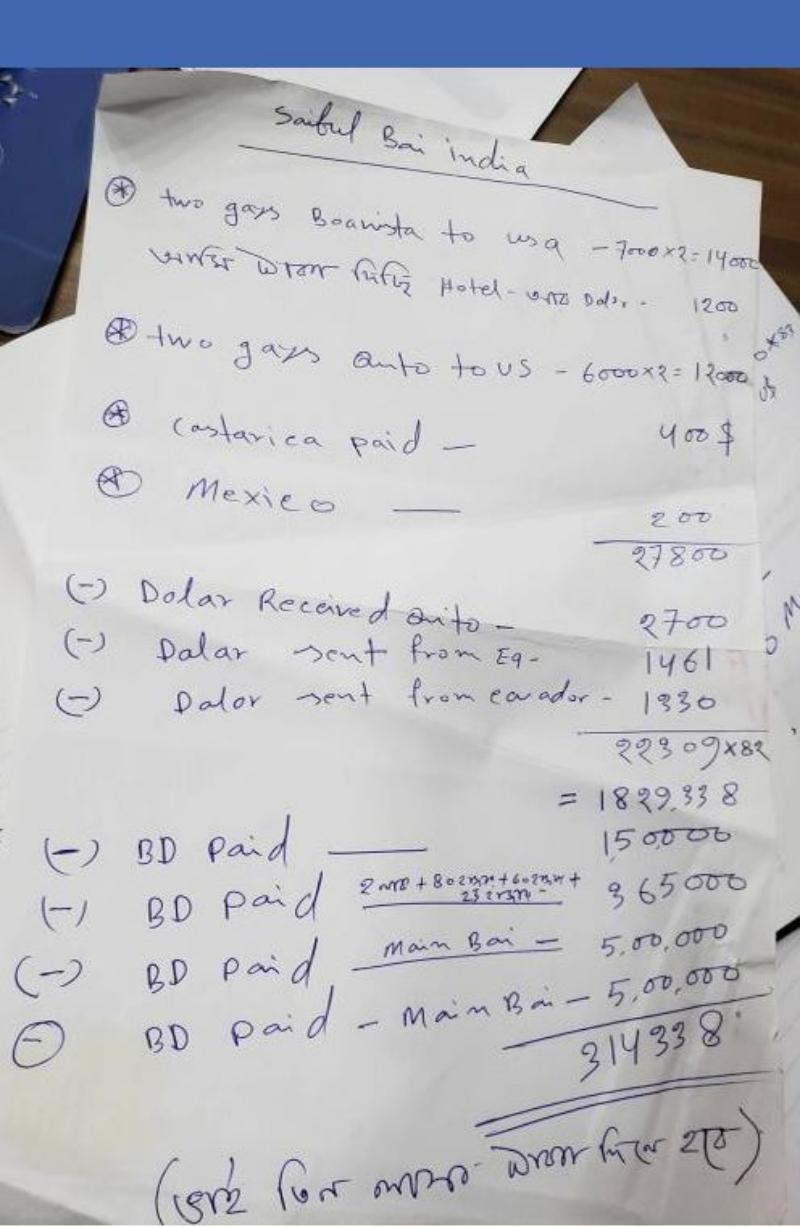 Saiful Bai india
* two gays Boavista to usa - 7000×2=14000
Hotel - Dolar - 1200
* two gays quito to US - 6000×2=12000
* Castarica paid - 400 $
* Mexico — 200
27800
(-) Dolar Received quito - 2700
(-) Dalar sent from Eq - 1461
(-) Dalor sent from eavador - 1330
22309×82
= 1829338
(-) BD paid — 150000
(-) BD paid 365000
(-) BD paid Main Bai - 5,00,000
(-) BD paid - Main Bai - 5,00,000
314338
(ভাই তিন লাখ টাকা দিতে হবে)